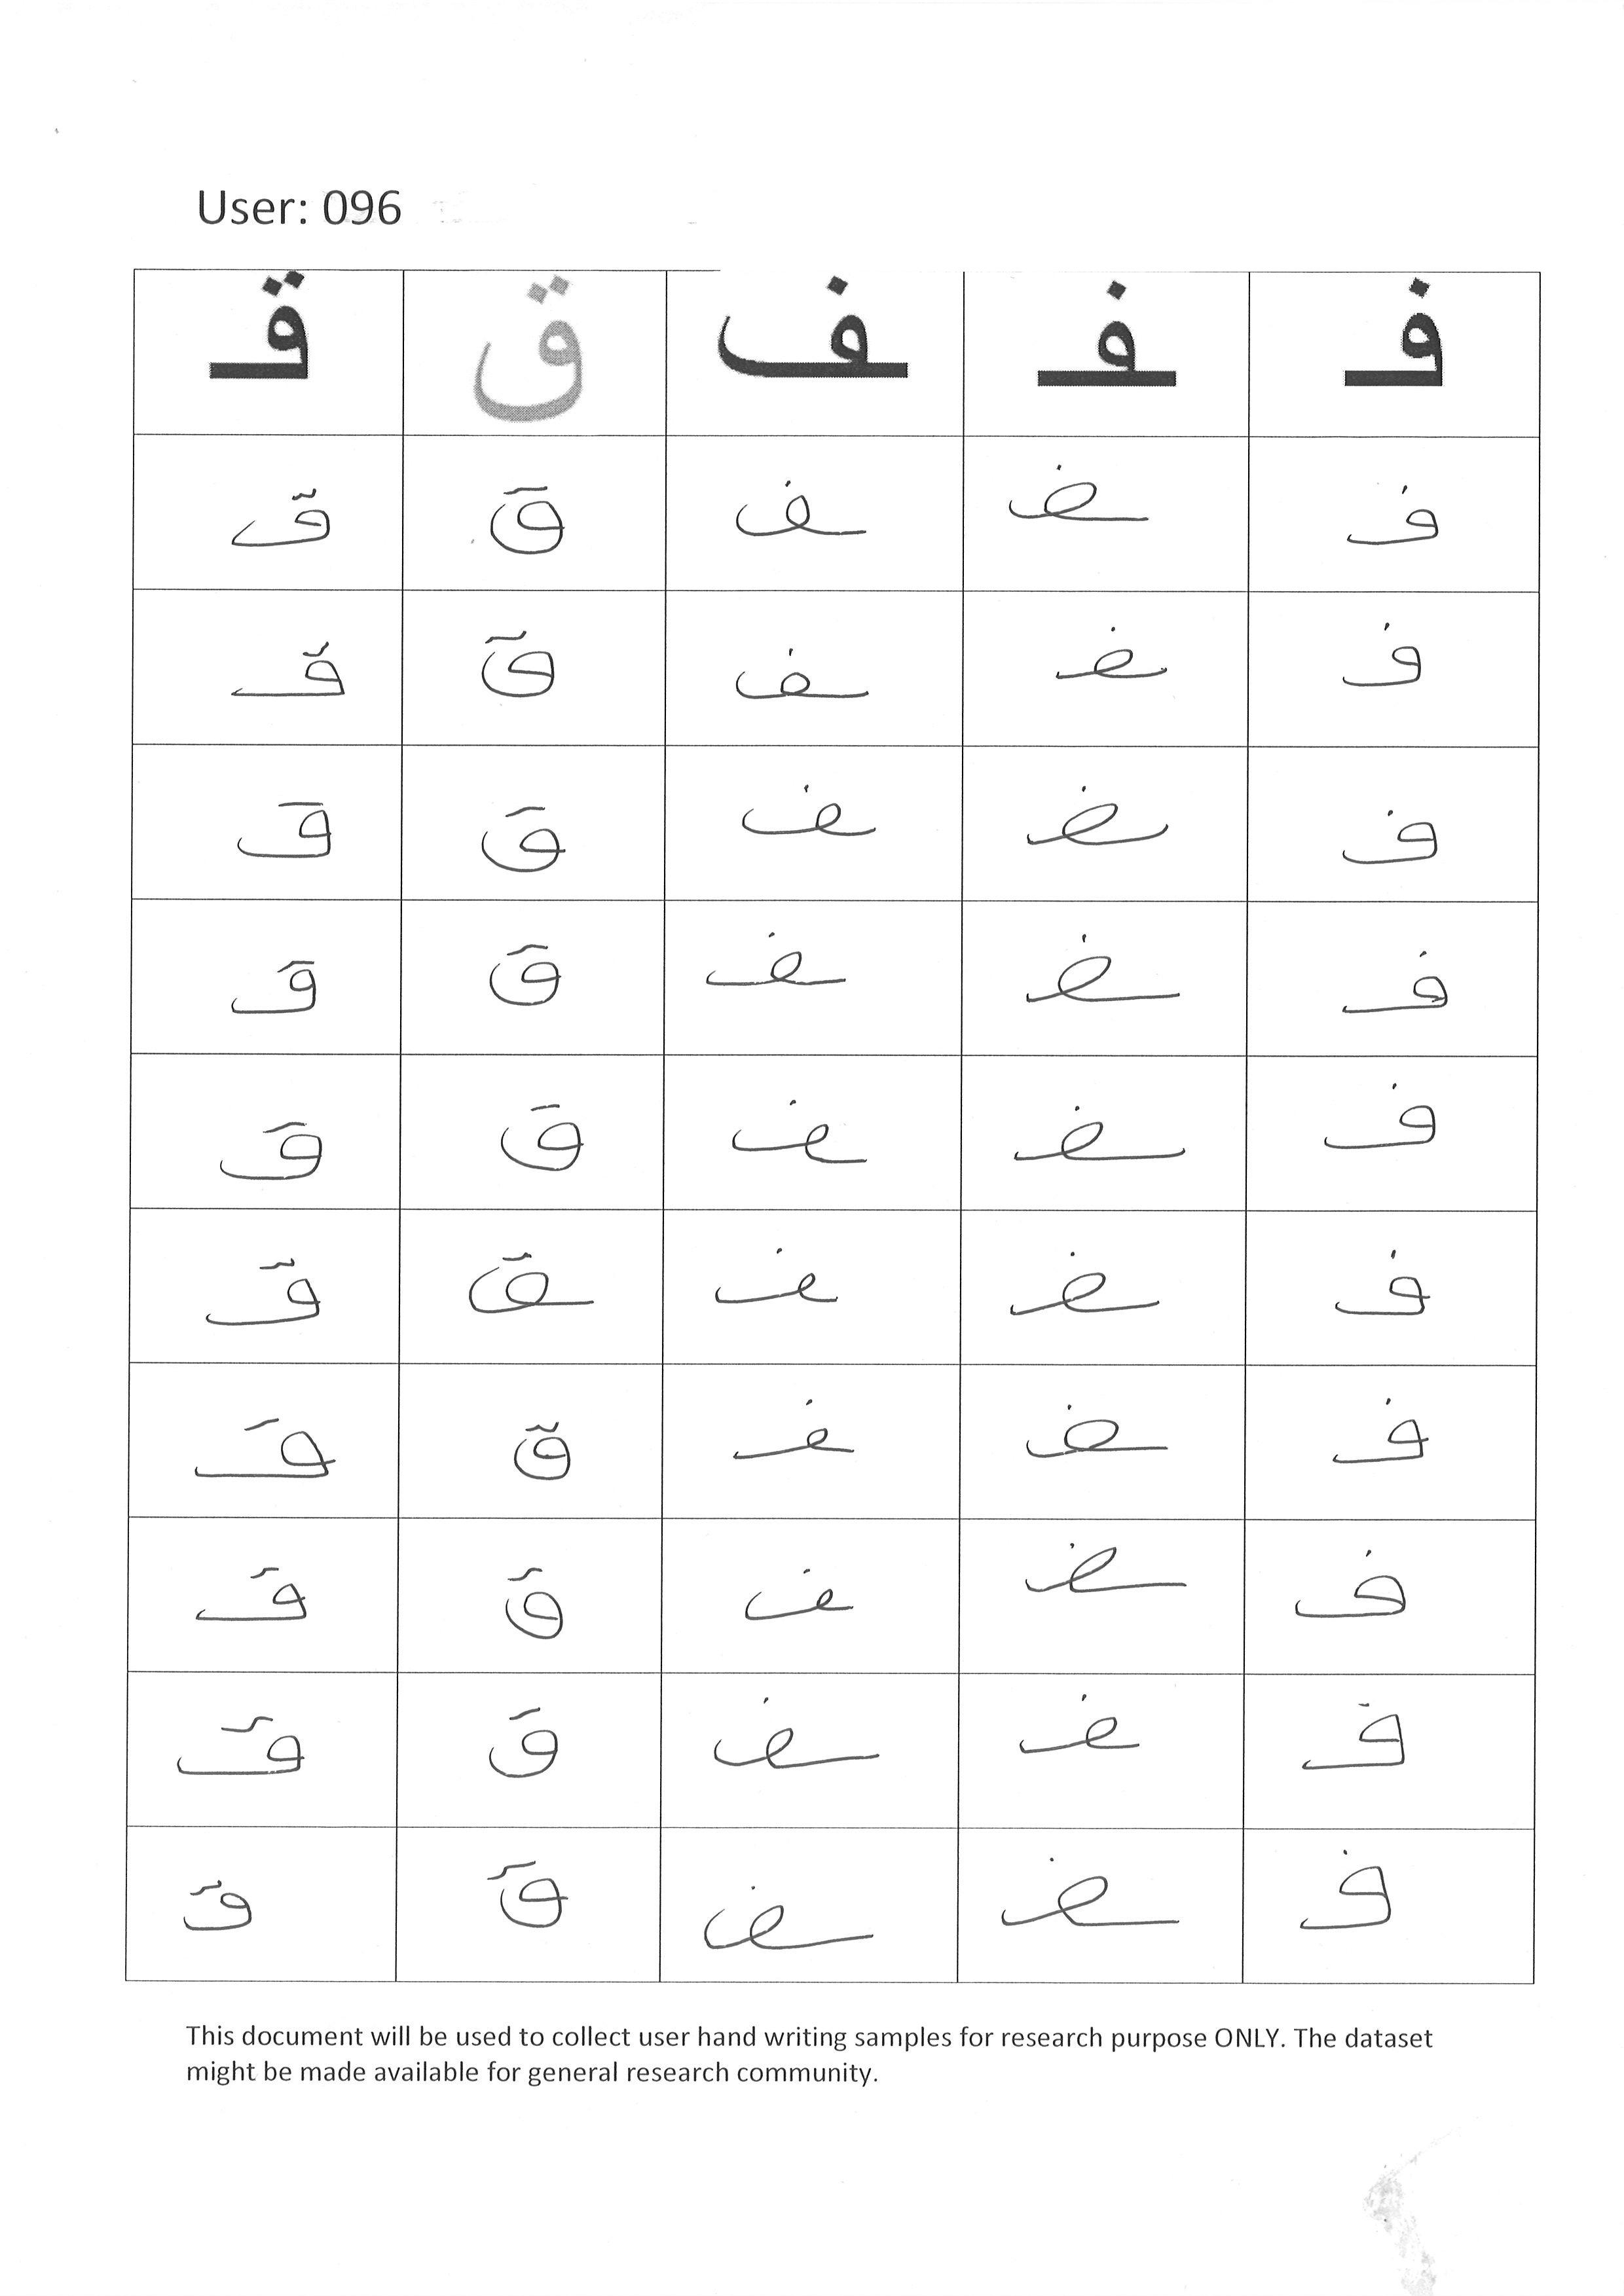 User: 096
فـ ـفـ ـف ق قـ
فـ ـفـ ـف ق قـ
فـ ـفـ ـف ق قـ
فـ ـفـ ـف ق قـ
فـ ـفـ ـف ق قـ
فـ ـفـ ـف ق قـ
فـ ـفـ ـف ق قـ
فـ ـفـ ـف ق قـ
فـ ـفـ ـف ق قـ
فـ ـفـ ـف ق قـ
فـ ـفـ ـف ق قـ
This document will be used to collect user hand writing samples for research purpose ONLY. The dataset
might be made available for general research community.